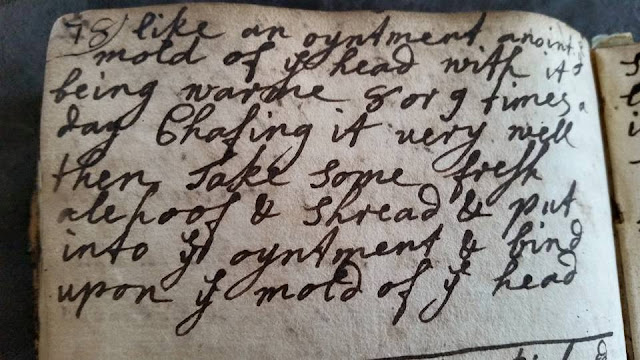 78) like an oyntment anoint
mold of ye head with it
being warme 8 or 9 times a
day Chafing it very well
then Take some fresh
alehoof & shread & put
into ye oyntment & bind
upon ye mold of ye head